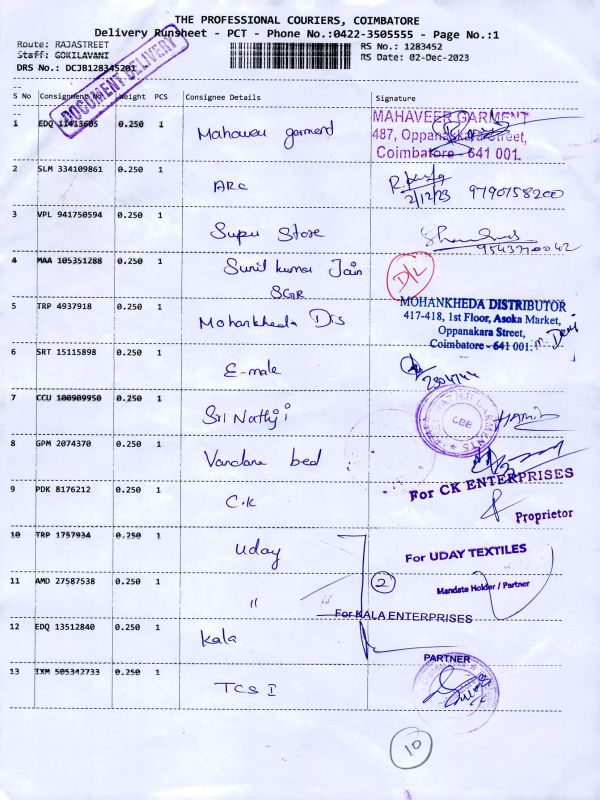 THE PROFESSIONAL COURIERS, COIMBATORE
Delivery Runsheet - PCT - Phone No.:0422-3505555 - Page No.:1
Route: RAJASTREET
Staff: GOKILAVANI
DRS No.: DCJB128345201
RS No.: 1283452
RS Date: 02-Dec-2023
DOCUMENT DELIVERY
S No Consignment No Weight PCS Consignee Details Signature
1 EDQ 11413605 0.250 1 Mahaveer garmend
MAHAVEER GARMENT
487, Oppanakkara Street,
Coimbatore - 641 001.
2 SLM 334109861 0.250 1 ARC
2/12/23 9790158200
3 VPL 941750594 0.250 1 Super Store
4 MAA 105351288 0.250 1 Sunil kumar Jain
SGR
D/L
5 TRP 4937918 0.250 1 Mohankheda Dis
MOHANKHEDA DISTRIBUTOR
417-418, 1st Floor, Asoka Market,
Oppanakara Street,
Coimbatore - 641 001.
6 SRT 15115898 0.250 1 E-male
2304744
7 CCU 100909950 0.250 1 Sri Nathji
CBE
8 GPM 2074370 0.250 1 Vandana bed
9 PDK 8176212 0.250 1 C.K
For CK ENTERPRISES
Proprietor
10 TRP 1757934 0.250 1 Uday
For UDAY TEXTILES
11 AMD 27587538 0.250 1 "
2
Mandate Holder / Partner
For KALA ENTERPRISES
12 EDQ 13512840 0.250 1 Kala
PARTNER
13 IXM 505342733 0.250 1 TCS I
10